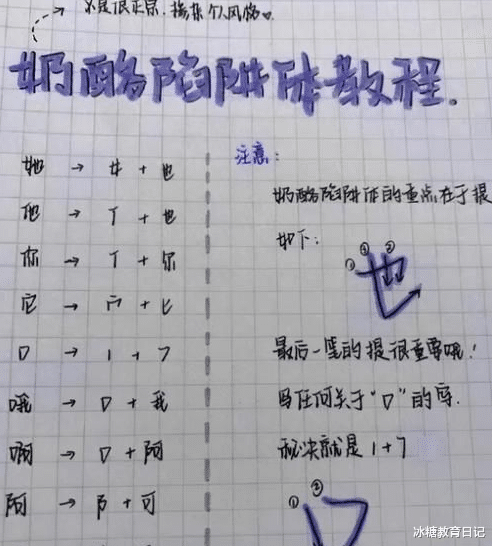 不是很正宗，掺杂个人风格
奶酪陷阱体教程.
她 → 女 + 也
他 → 亻 + 也
你 → 亻 + 尔
它 → 宀 + 匕
口 → 1 + 7
哦 → 口 + 我
啊 → 口 + 阿
阿 → 阝 + 可
注意：
奶酪陷阱体的重点在于提
如下：
① ② ③
也
最后一笔的提很重要哦！
写任何关于“口”的字.
秘诀就是 1 + 7
① ②
口
冰糖教育日记